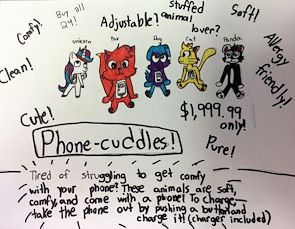 Comfy!
Buy all
24!
Adjustable!
stuffed
animal
lover?
Soft!
Allergy
friendly!
Clean!
unicorn
Fox
Dog
Cat
Panda
$1,999.99
only!
Cute!
Phone-cuddles!
Pure!
Tired of struggling to get comfy
with your phone? These animals are soft,
comfy, and come with a phone! To charge,
take the phone out by pushing a button and
charge it! (charger included)